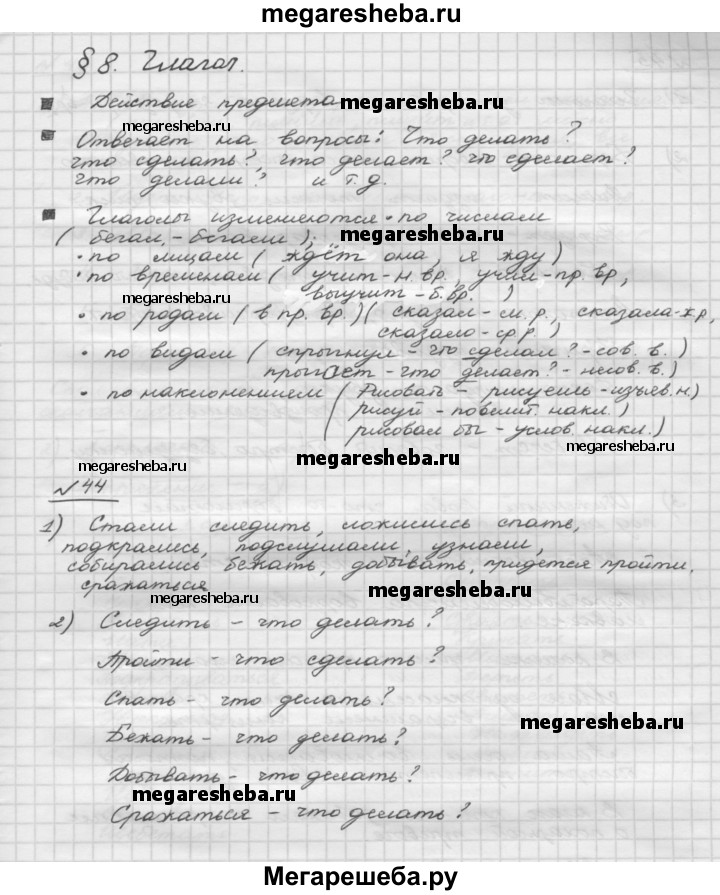 megaresheba.ru
§ 8. Глагол.
Действие предмета megaresheba.ru
megaresheba.ru
Отвечает на вопросы: Что делать?
что сделать?, что делает? что сделает?
что делали? и т.д. megaresheba.ru
Глаголы изменяются • по числам
(бегал, - бегали); megaresheba.ru
• по лицам (ждёт она, я жду)
• по временам (учит - н.вр., учил - пр. вр,
megaresheba.ru выучит - б.вр. )
• по родам (в пр. вр.)(сказал - м. р., сказала - ж.р,
сказало - ср.р.)
• по видам (спрыгнул - что сделал? - сов. в.)
прыгает - что делает? - несов. в.)
• по наклонением (Рисовать - рисуешь - изъяв.н.)
(рисуй - повелит. накл.)
(рисовал бы - услов. накл.)
megaresheba.ru
megaresheba.ru
megaresheba.ru
№44
1) Стали следить, ложились спать,
подкрались, подслушали, узнали,
собирались бежать, добывать, придется пройти,
сражаться megaresheba.ru
megaresheba.ru
2) Следить - что делать?
Пройти - что сделать?
Спать - что делать?
megaresheba.ru
Бежать - что делать?
Добывать - что делать?
megaresheba.ru
Сражаться - что делать?
Мегарешеба.ру